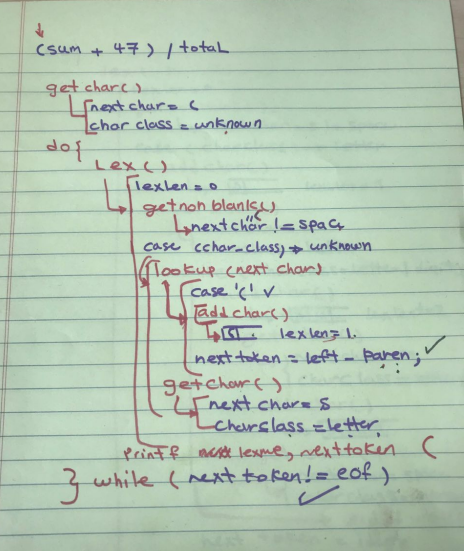 (sum + 47) / total
getchar()
nextchar = (
char class = unknown
do{
Lex()
lexLen = 0
getnonblank()
nextchar != space
case (char_class) → unknown
lookup (next char)
case '(' ✓
add char()
( lexlen = 1.
next token = left - paren; ✓
getchar()
next char = s
charclass = letter
printf lexme, nexttoken (
} while (next token != eof)
✓